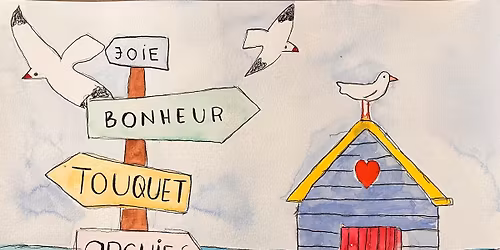 JOIE
BONHEUR
TOUQUET